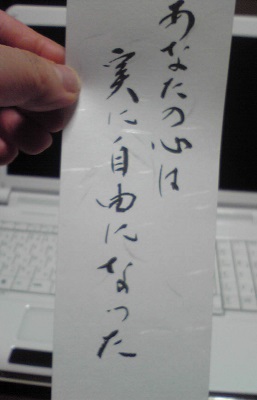 あなたの心は
実に自由になった